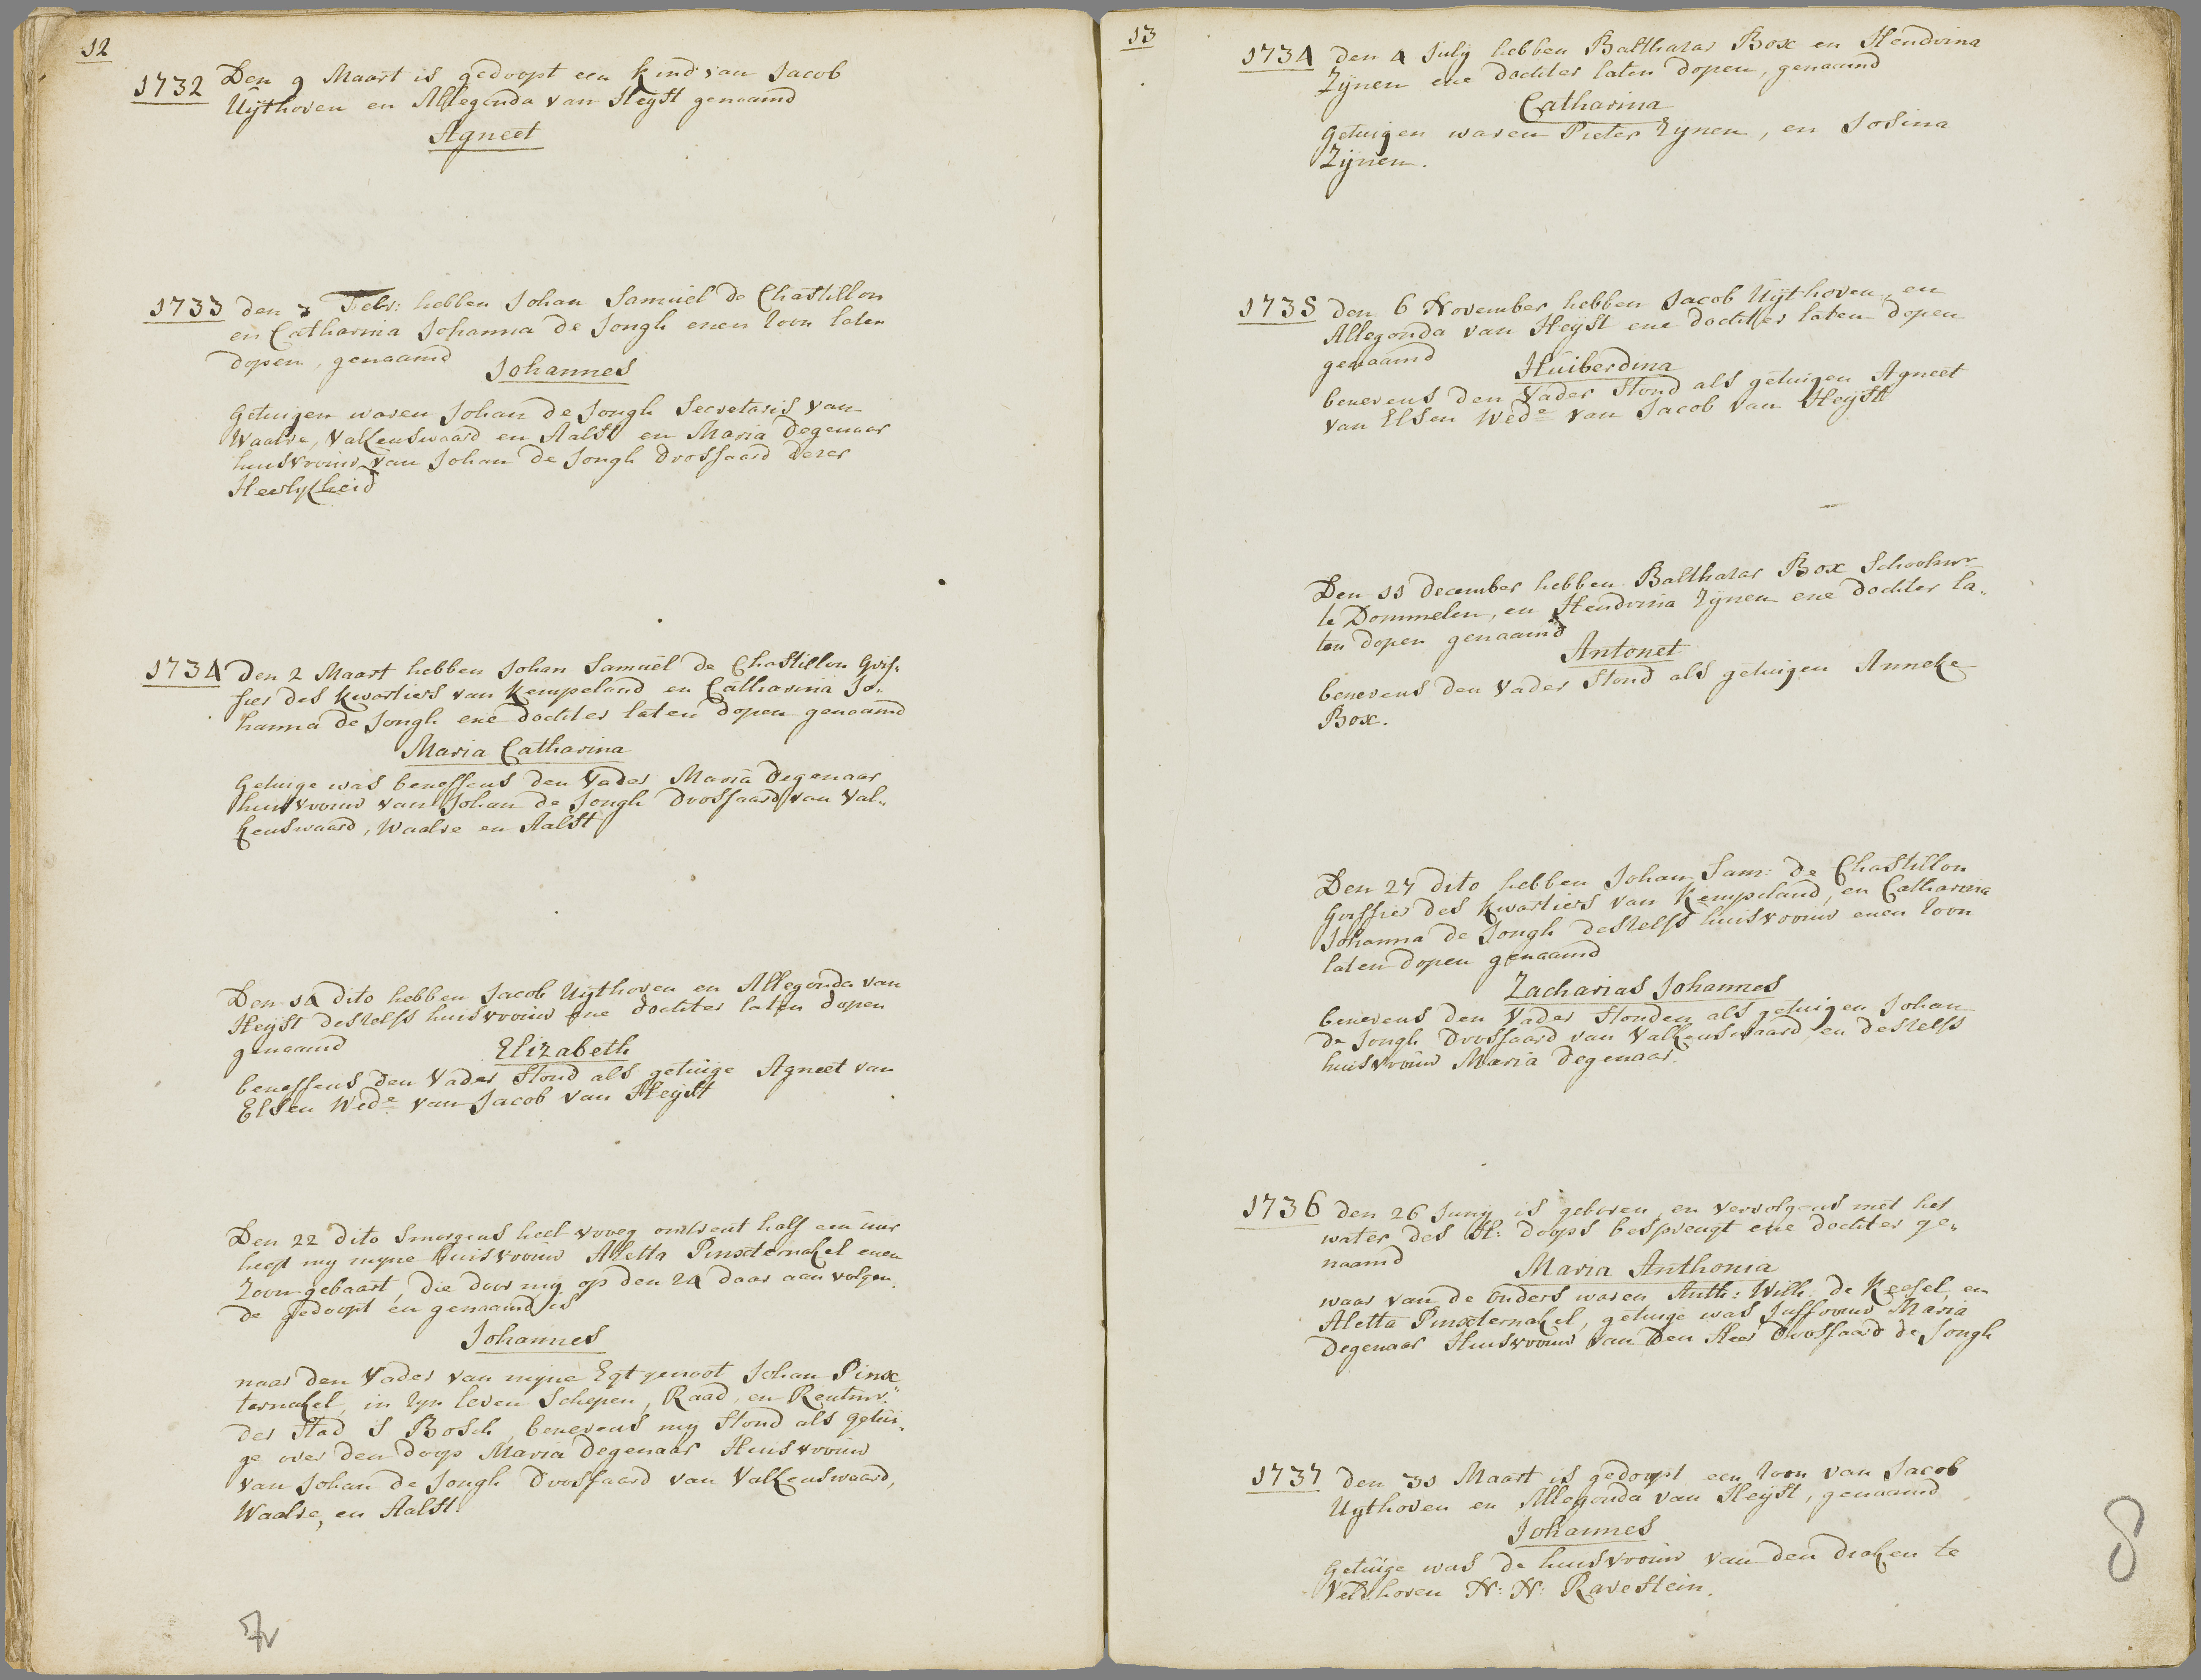 12
1732 Den 9 Maart is gedoopt een kind van Jacob
Uijthoven en Allegonda van Heyst genaamd
Agneet
1733 den 3 Febr: hebben Johan Samuel de Chastillon
en Catharina Johanna de Jongh enen Zoon laten
dopen, genaamd
Johannes
Getuigen waren Johan de Jongh Secretaris van
Waalre, Valkenswaard en Aalst en Maria Degenaar
huisvrouw van Johan de Jongh Drossaard dezer
Heerlykheid
1734 Den 2 Maart hebben Johan Samuel de Chastillon Grif„
fier des kwartiers van Kempeland en Catharina Jo„
hanna de Jongh ene dochter laten dopen genaamd
Maria Catharina
Getuige was beneffens den Vader Maria Degenaar
huisvrouw van Johan de Jongh Drossaard van Val„
kenswaard, Waalre en Aalst
Den 14 dito hebben Jacob Uijthoven en Allegonda van
Heyst deszelfs huisvrouw ene dochter laten dopen
genaamd
Elizabeth
beneffens den Vader stond als getuige Agneet van
Elsen Wede van Jacob van Heyst
Den 22 dito smorgens heel vroeg omtrent half een uur
heeft my myne huisvrouw Aletta Pinxternakel enen
Zoon gebaart, die door my op den 24 daar aan volgen„
de gedoopt en genaamd is
Johannes
naar den Vader van myne Egtgenoot Johan Pinx
ternakel, in zyn leven Schepen, Raad, en Rentmr
der Stad S Bosch, benevens my stond als getui„
ge over den doop Maria Degenaar Huisvrouw
van Johan de Jongh Drossaard van Valkenswaard,
Waalre, en Aalst.
7v
13
1734 den 4 July hebben Balthazar Box en Hendrina
Zijnen ene dochter laten dopen, genaamd
Catharina
Getuigen waren Pieter Zynen, en Josina
Zijnen.
1735 den 6 November hebben Jacob Uijthoven, en
Allegonda van Heijst ene dochter laten dopen
genaamd
Huiberdina
benevens den Vader stond als getuigen Agneet
van Elsen Wede van Jacob van Heijst
Den 11 december hebben Balthazar Box Schoolmr
te Dommelen, en Hendrina Zijnen ene dochter la„
ten dopen genaamd
Antonet
benevens den Vader stond als getuigen Anneke
Box.
Den 27 dito hebben Johan Sam: de Chastillon
Griffier des kwartiers van Kempeland, en Catharina
Johanna de Jongh deszelfs huisvrouw enen Zoon
laten dopen genaamd
Zacharias Johannes
benevens den Vader stonden als getuigen Johan
de Jongh Drossaard van Valkenswaard en deszelfs
huisvrouw Maria Degenaar.
1736 den 26 Juny is geboren, en vervolgens met het
water des H: doops besprengt ene dochter ge„
naamd
Maria Anthonia
waar van de Ouders waren Anth: Wilh: de Kessel, en
Aletta Pinxternakel, getuige was Juffrouw Maria
Degenaar Huisvrouw van Den Heer Drossaard de Jongh
1737 den 31 Maart is gedoopt een Zoon van Jacob
Uythoven en Allegonda van Heijst, genaamd
Johannes
Getuige was de huisvrouw van den deaken te
Veldhoven N: N: Ravestein.
8